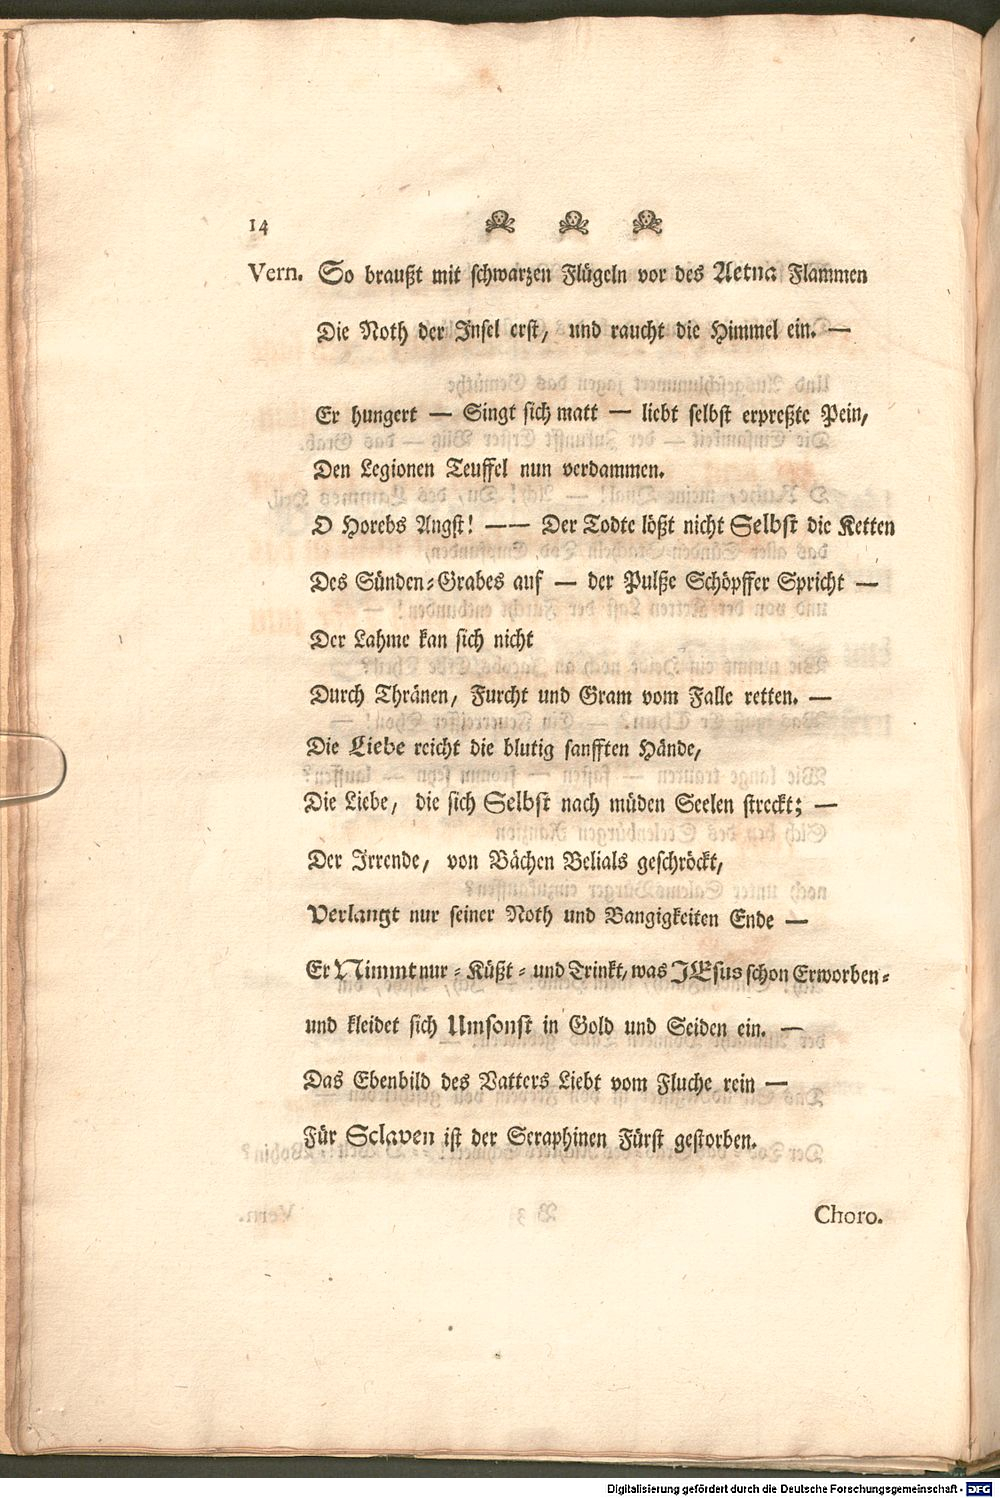 14
Vern. So braußt mit schwarzen Flügeln vor des Aetna Flammen
Die Noth der Insel erst, und raucht die Himmel ein. —
Er hungert — Singt sich matt — liebt selbst erpreßte Pein,
Den Legionen Teuffel nun verdammen.
O Horebs Angst! — — Der Todte lößt nicht Selbst die Ketten
Des Sünden-Grabes auf — der Pulße Schöpffer Spricht —
Der Lahme kan sich nicht
Durch Thränen, Furcht und Gram vom Falle retten. —
Die Liebe reicht die blutig sanfften Hände,
Die Liebe, die sich Selbst nach müden Seelen streckt; —
Der Irrende, von Bächen Belials geschröckt,
Verlangt nur seiner Noth und Bangigkeiten Ende —
Er Nimmt nur - Küßt - und Trinkt, was JEsus schon Erworben-
und kleidet sich Umsonst in Gold und Seiden ein. —
Das Ebenbild des Vatters Liebt vom Fluche rein —
Für Sclaven ist der Seraphinen Fürst gestorben.
Choro.
Digitalisierung gefördert durch die Deutsche Forschungsgemeinschaft - DFG